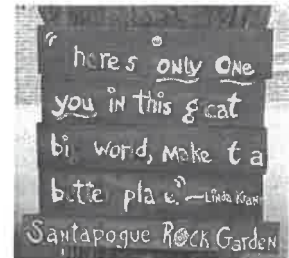 "heres only One
you in this great
big world, Make it a
better place."—Linda Kranz
Santapogue Rock Garden